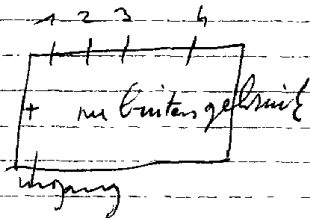 1 2 3 4
+ nu buitengebruik
ingang